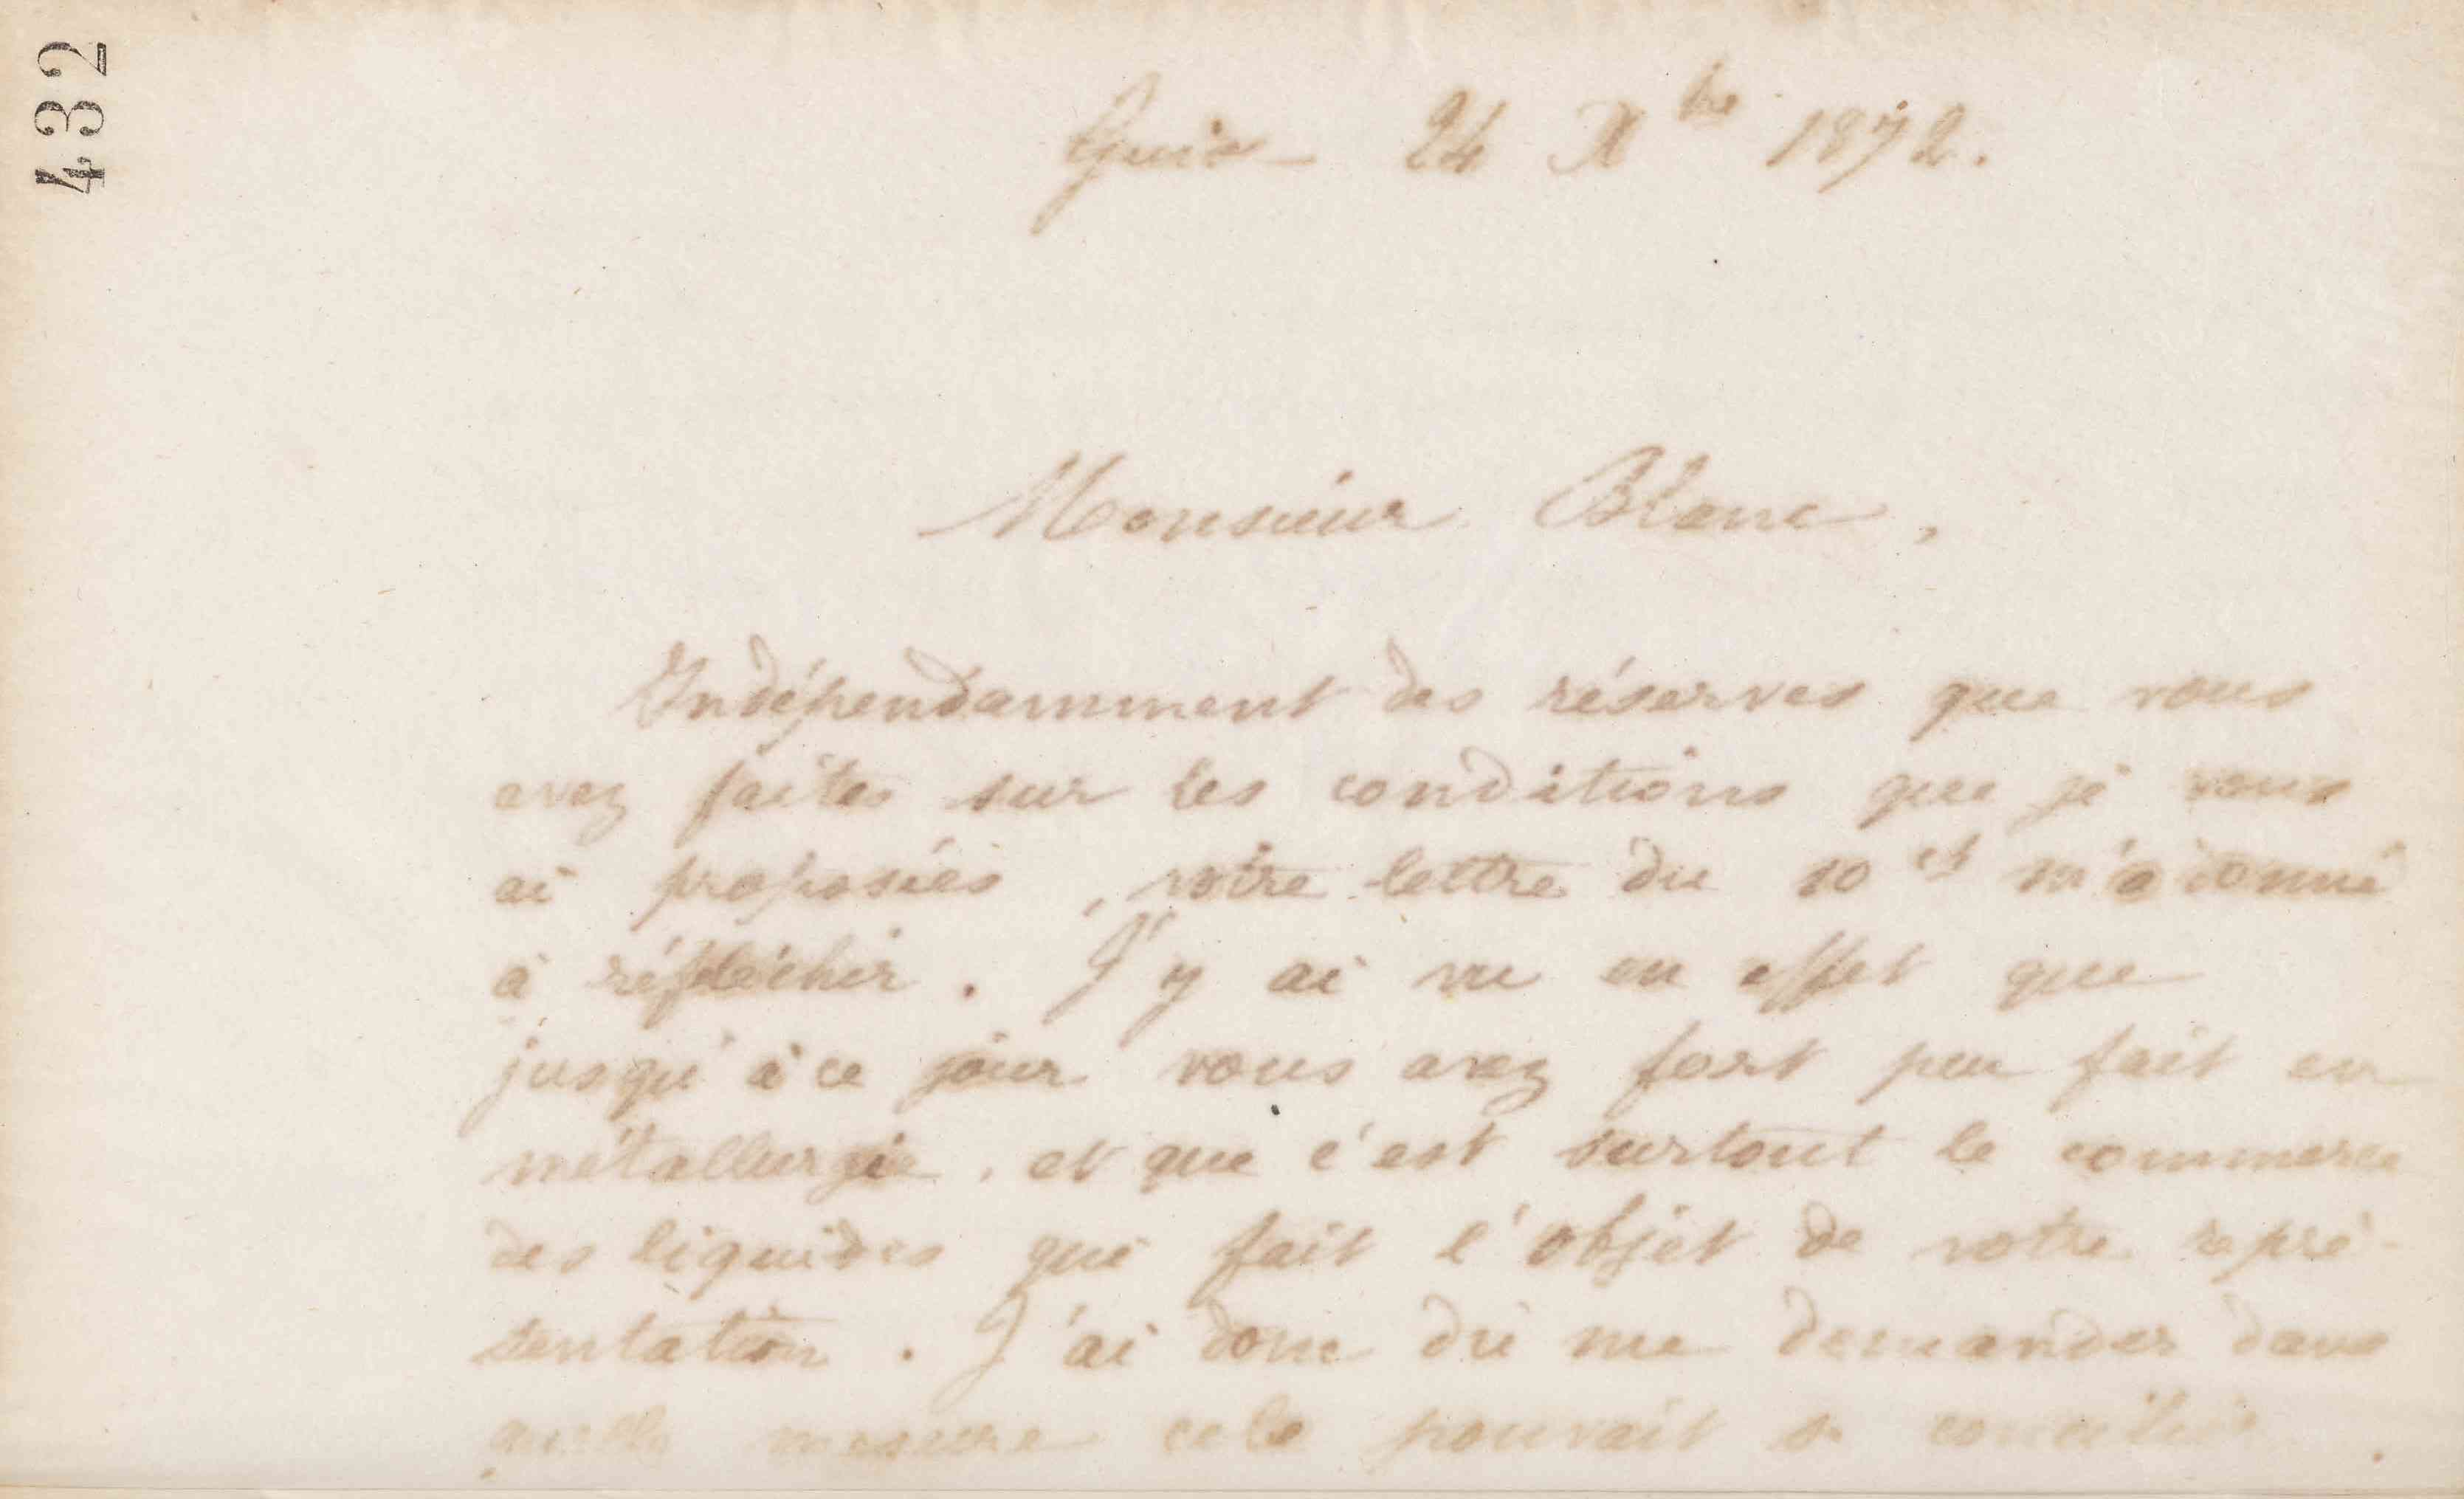 432
Guise 24 Xbre 1872.
Monsieur Blanc,
Indépendamment des réserves que vous
avez faites sur les conditions que je vous
ai proposées, votre lettre du 10 ct m'a donné
à réfléchir. J'y ai vu en effet que
jusqu'à ce jour vous avez fort peu fait en
métallurgie, et que c'est surtout le commerce
des liquides qui fait l'objet de votre repré-
sentation. J'ai donc dû me demander dans
quelle mesure cela pouvait se concilier